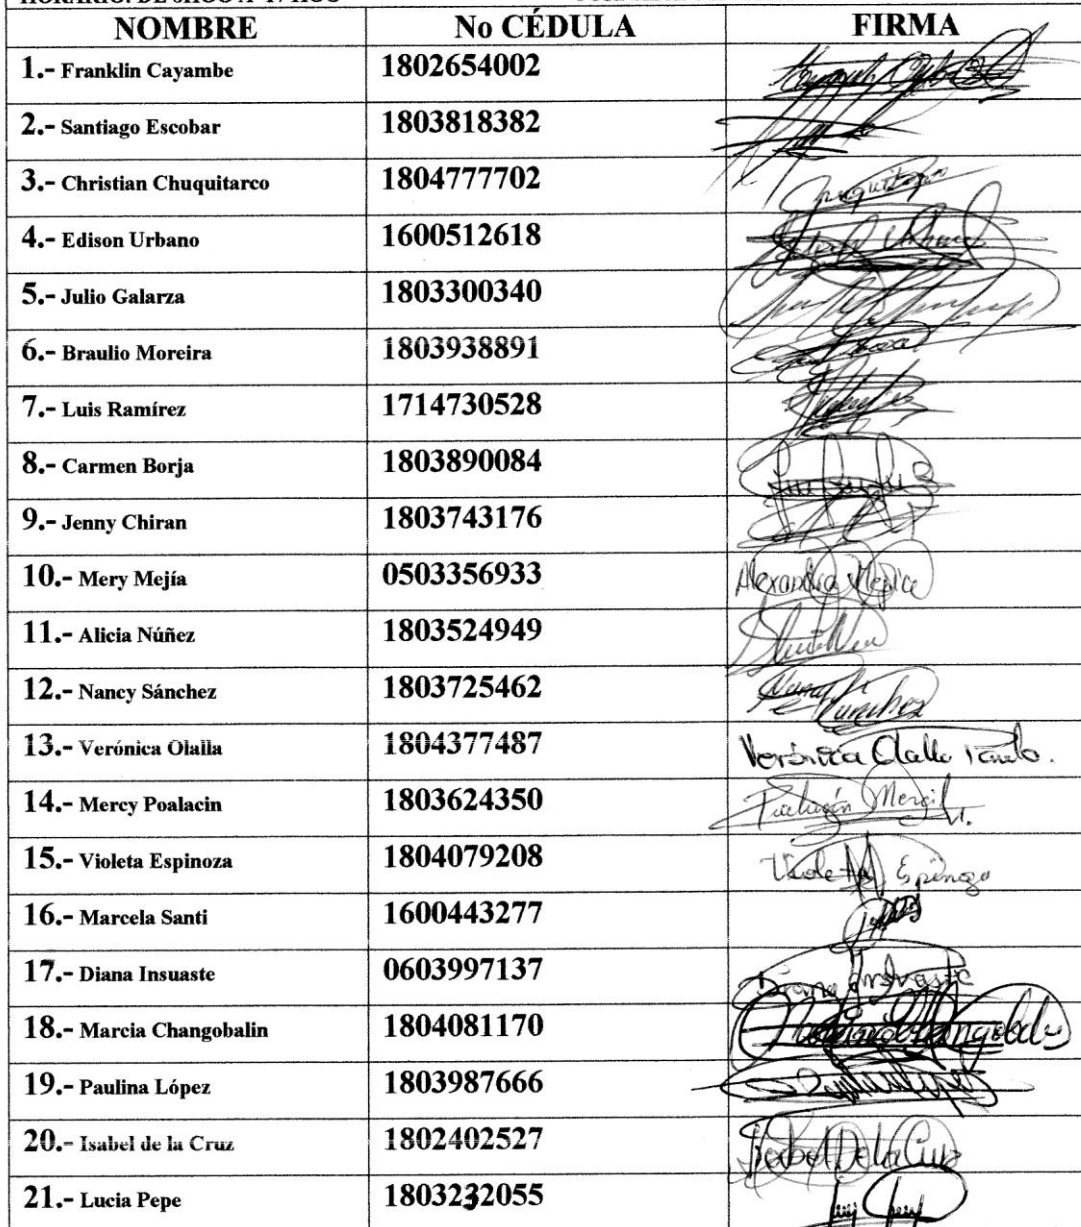 NOMBRE No CÉDULA FIRMA
1.- Franklin Cayambe 1802654002
2.- Santiago Escobar 1803818382
3.- Christian Chuquitarco 1804777702
4.- Edison Urbano 1600512618
5.- Julio Galarza 1803300340
6.- Braulio Moreira 1803938891
7.- Luis Ramírez 1714730528
8.- Carmen Borja 1803890084
9.- Jenny Chiran 1803743176
10.- Mery Mejía 0503356933 Alexandra Mejica
11.- Alicia Núñez 1803524949
12.- Nancy Sánchez 1803725462 Nancy Sanchez
13.- Verónica Olalla 1804377487 Verónica Olalla
14.- Mercy Poalacin 1803624350
15.- Violeta Espinoza 1804079208 Violeta Espinoza
16.- Marcela Santi 1600443277
17.- Diana Insuaste 0603997137 Diana Insuaste
18.- Marcia Changobalin 1804081170
19.- Paulina López 1803987666
20.- Isabel de la Cruz 1802402527 Isabel De la Cruz
21.- Lucia Pepe 1803232055